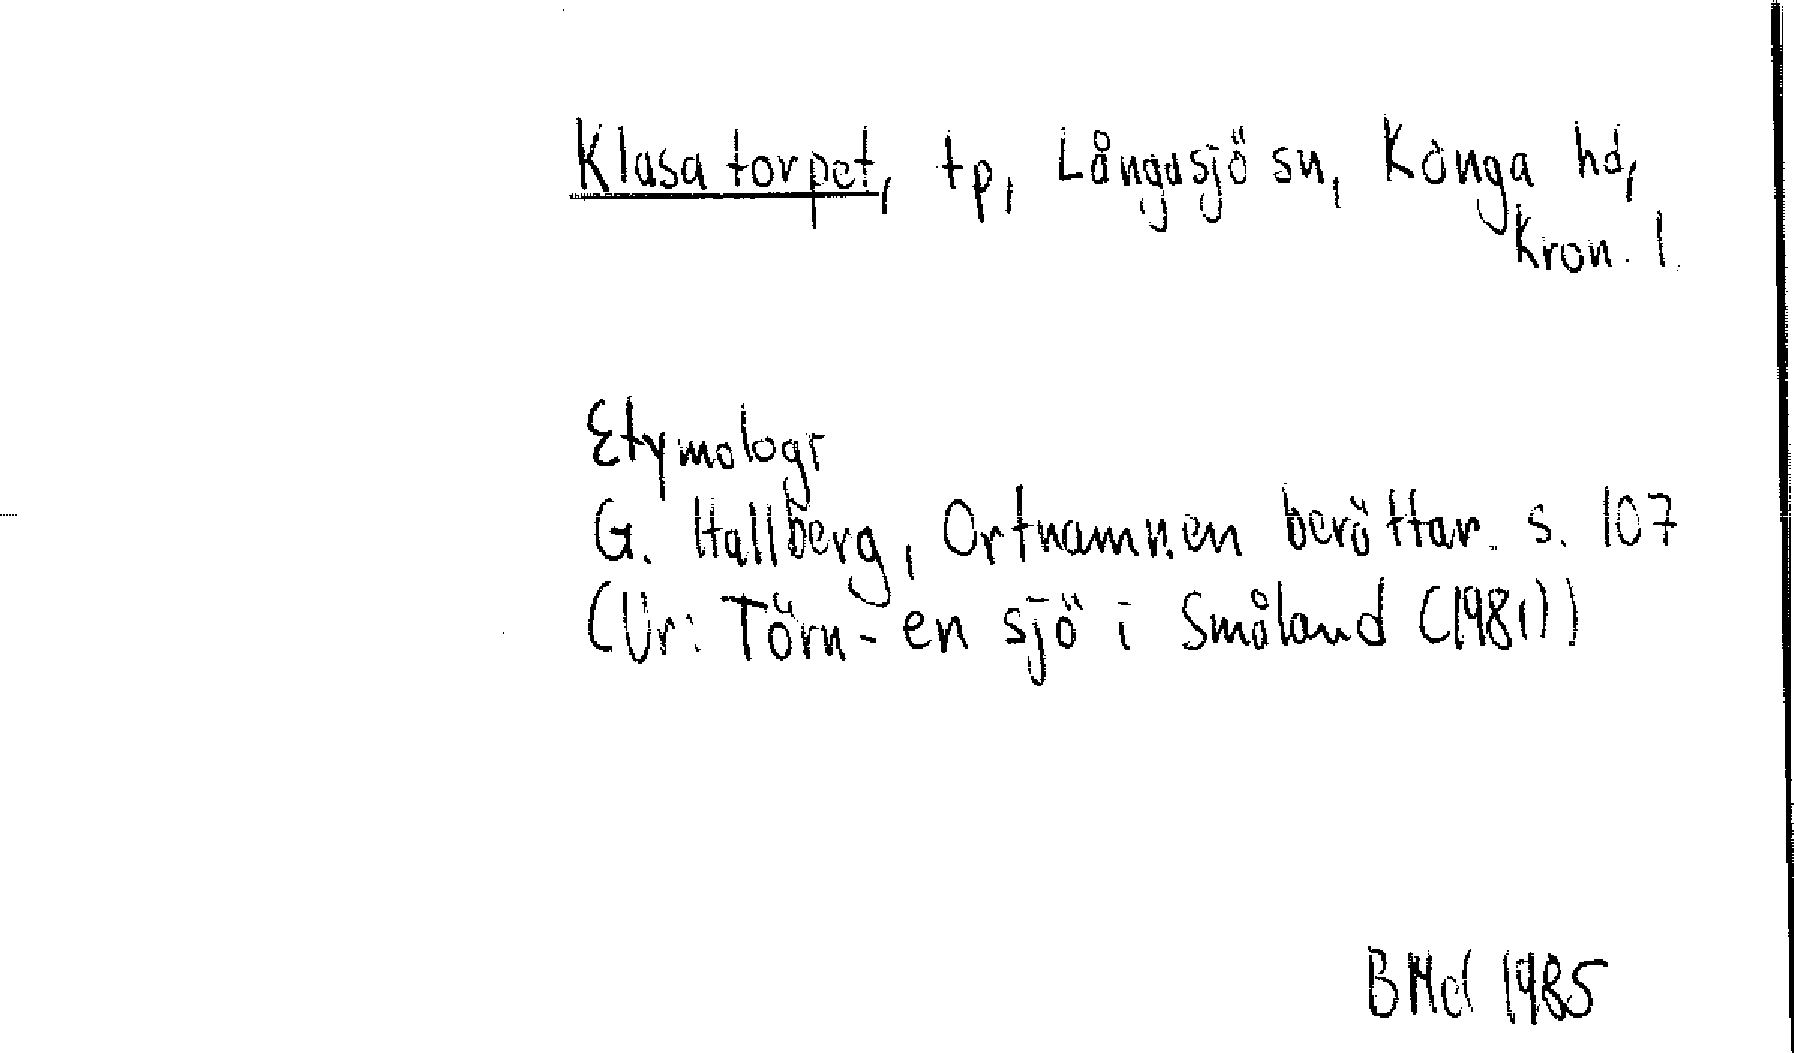 Klasatorpet, tp, Långasjö sn, Konga hd,
Kron. l.
Etymologi
G. Hallberg, Ortnamnen berättar. s. 107
(Ur: Törn - en sjö i Småland (1981))
BMd 1985